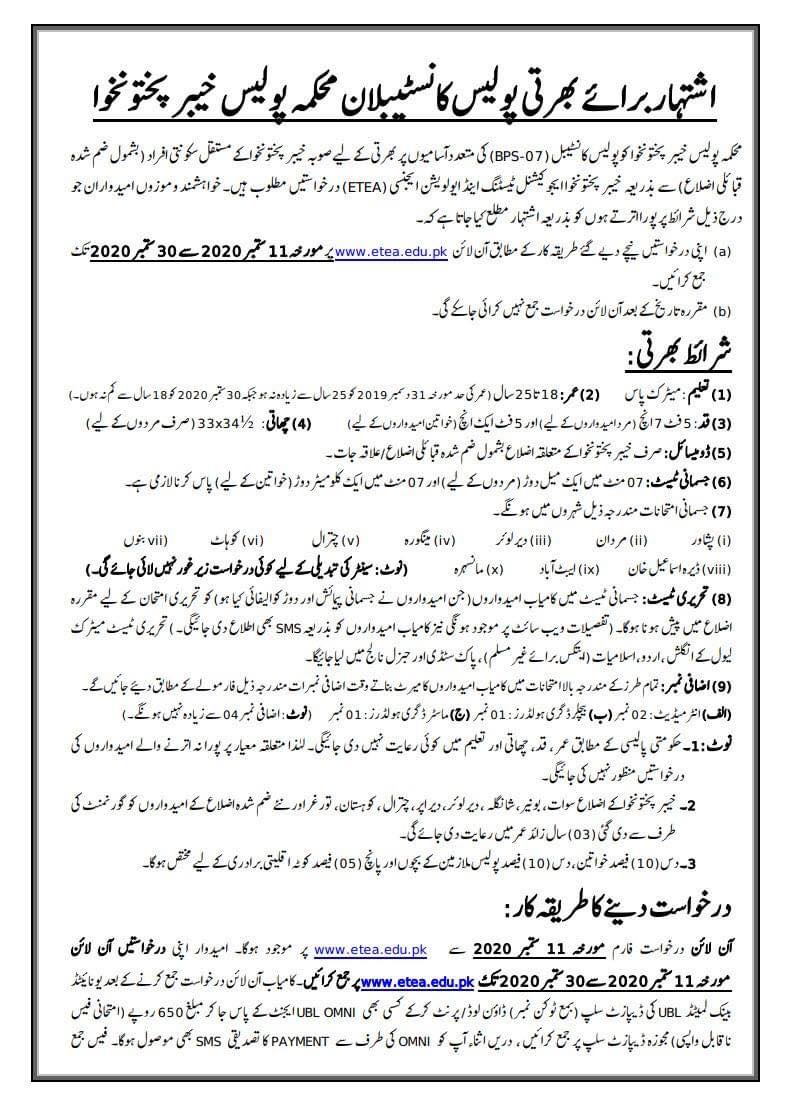 اشتہار برائے بھرتی پولیس کانسٹیبلان محکمہ پولیس خیبر پختونخوا
محکمہ پولیس خیبر پختونخوا کو پولیس کانسٹیبل (BPS-07) کی متعدد آسامیوں پر بھرتی کے لیے صوبہ خیبر پختونخوا کے مستقل سکونتی افراد (بشمول ضم شدہ
قبائلی اضلاع) سے بذریعہ خیبر پختونخوا ایجوکیشنل ٹیسٹنگ اینڈ ایولویشن ایجنسی (ETEA) درخواستیں مطلوب ہیں۔ خواہشمند و موزوں امیدواران جو
درج ذیل شرائط پر پورا اترتے ہوں کو بذریعہ اشتہار مطلع کیا جاتا ہے کہ۔
(a) اپنی درخواستیں نیچے دیے گئے طریقہ کار کے مطابق آن لائن www.etea.edu.pk پر مورخہ 11 ستمبر 2020 سے 30 ستمبر 2020 تک
جمع کرائیں۔
(b) مقررہ تاریخ کے بعد آن لائن درخواست جمع نہیں کرائی جا سکے گی۔
شرائط بھرتی:
(1) تعلیم: میٹرک پاس (2) عمر: 18 تا 25 سال (عمر کی حد مورخہ 31 دسمبر 2019 کو 25 سال سے زیادہ نہ ہو جبکہ 30 ستمبر 2020 کو 18 سال سے کم نہ ہوں۔)
(3) قد: 5 فٹ 7 انچ (مرد امیدواروں کے لیے) اور 5 فٹ ایک انچ (خواتین امیدواروں کے لیے) (4) چھاتی: 33x34½ (صرف مردوں کے لیے)
(5) ڈومیسائل: صرف خیبر پختونخوا کے متعلقہ اضلاع بشمول ضم شدہ قبائلی اضلاع/علاقہ جات۔
(6) جسمانی ٹیسٹ: 07 منٹ میں ایک میل دوڑ (مردوں کے لیے) اور 07 منٹ میں ایک کلومیٹر دوڑ (خواتین کے لیے) پاس کرنا لازمی ہے۔
(7) جسمانی امتحانات مندرجہ ذیل شہروں میں ہونگے۔
(i) پشاور (ii) مردان (iii) دیر لوئر (iv) مینگورہ (v) چترال (vi) کوہاٹ (vii) بنوں
(viii) ڈیرہ اسماعیل خان (ix) ایبٹ آباد (x) مانسہرہ (نوٹ: سینٹر کی تبدیلی کے لیے کوئی درخواست زیر غور نہیں لائی جائے گی۔)
(8) تحریری ٹیسٹ: جسمانی ٹیسٹ میں کامیاب امیدواروں (جن امیدواروں نے جسمانی پیمائش اور دوڑ کوالیفائی کیا ہو) کو تحریری امتحان کے لیے مقررہ
اضلاع میں پیش ہونا ہوگا۔ (تفصیلات ویب سائٹ پر موجود ہونگی نیز کامیاب امیدواروں کو بذریعہ SMS بھی اطلاع دی جائیگی۔) تحریری ٹیسٹ میٹرک
لیول کے انگلش، اردو، اسلامیات (ایتھکس برائے غیر مسلم)، پاک سٹڈی اور جنرل نالج میں لیا جائیگا۔
(9) اضافی نمبر: تمام طرز کے مندرجہ بالا امتحانات میں کامیاب امیدواروں کا میرٹ بناتے وقت اضافی نمبرات مندرجہ ذیل فارمولے کے مطابق دیئے جائیں گے۔
(الف) انٹرمیڈیٹ: 02 نمبر (ب) بیچلر ڈگری ہولڈرز: 01 نمبر (ج) ماسٹر ڈگری ہولڈرز: 01 نمبر (نوٹ: اضافی نمبر 04 سے زیادہ نہیں ہونگے۔)
نوٹ: 1۔ حکومتی پالیسی کے مطابق عمر، قد، چھاتی اور تعلیم میں کوئی رعایت نہیں دی جائیگی۔ لہٰذا متعلقہ معیار پر پورا نہ اترنے والے امیدواروں کی
درخواستیں منظور نہیں کی جائیگی۔
2۔ خیبر پختونخوا کے اضلاع سوات، بونیر، شانگلہ، دیر لوئر، دیر اپر، چترال، کوہستان، تورغر اور نئے ضم شدہ اضلاع کے امیدواروں کو گورنمنٹ کی
طرف سے دی گئی (03) سال زائد عمر میں رعایت دی جائے گی۔
3۔ دس (10) فیصد خواتین، دس (10) فیصد پولیس ملازمین کے بچوں اور پانچ (05) فیصد کوٹہ اقلیتی برادری کے لیے مختص ہوگا۔
درخواست دینے کا طریقہ کار:
آن لائن درخواست فارم مورخہ 11 ستمبر 2020 سے www.etea.edu.pk پر موجود ہوگا۔ امیدوار اپنی درخواستیں آن لائن
مورخہ 11 ستمبر 2020 سے 30 ستمبر 2020 تک www.etea.edu.pk پر جمع کرائیں۔ کامیاب آن لائن درخواست جمع کرنے کے بعد یونائیٹڈ
بینک لمیٹڈ UBL کی ڈیپازٹ سلپ (بمع ٹوکن نمبر) ڈاؤن لوڈ/پرنٹ کرکے کسی بھی UBL OMNI ایجنٹ کے پاس جا کر مبلغ 650 روپے (امتحانی فیس
ناقابل واپسی) مجوزہ ڈیپازٹ سلپ پر جمع کرائیں، دریں اثناء آپ کو OMNI کی طرف سے PAYMENT کا تصدیقی SMS بھی موصول ہوگا۔ فیس جمع